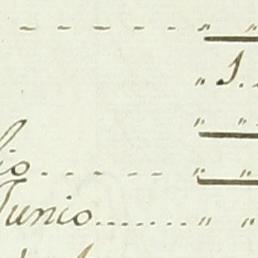 - - - - - - - " "
" 1.
" "
lio. - - - - - " "
Junio........ " "